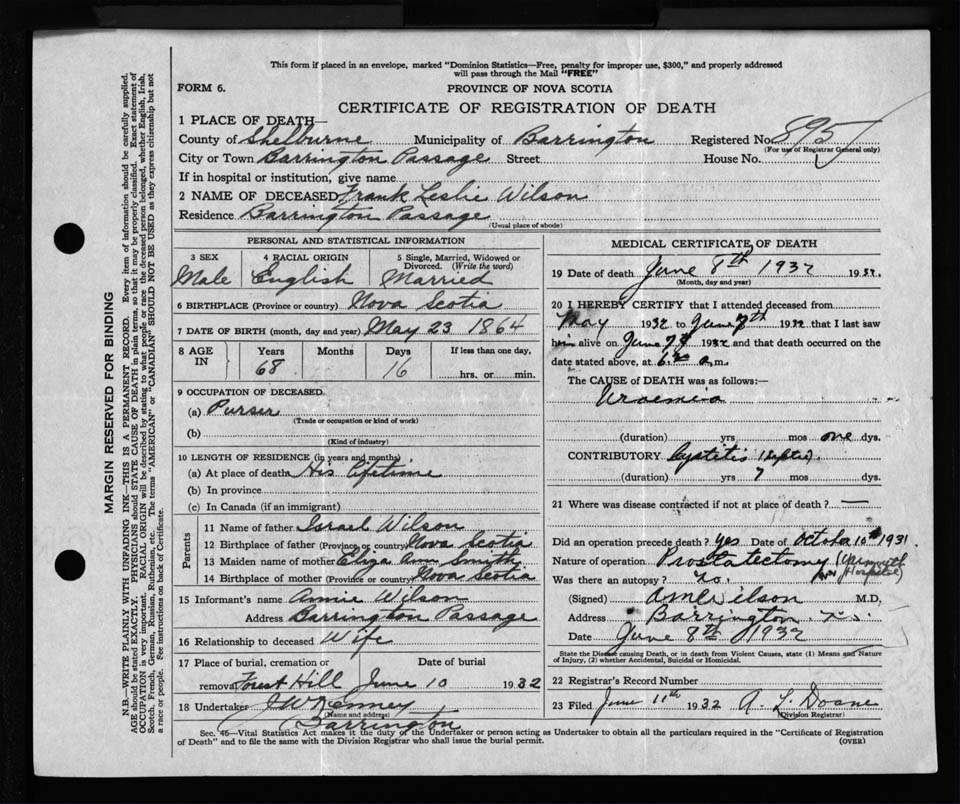 This form if placed in an envelope, marked "Dominion Statistics—Free, penalty for improper use, $300," and properly addressed
will pass through the Mail "FREE"
FORM 6.
PROVINCE OF NOVA SCOTIA
CERTIFICATE OF REGISTRATION OF DEATH
1 PLACE OF DEATH—
County of Shelburne Municipality of Barrington Registered No. 895
(For use of Registrar General only)
City or Town Barrington Passage Street House No.
If in hospital or institution, give name
2 NAME OF DECEASED Frank Leslie Wilson
Residence Barrington Passage
(Usual place of abode)
PERSONAL AND STATISTICAL INFORMATION
3 SEX 4 RACIAL ORIGIN 5 Single, Married, Widowed or
Divorced. (Write the word)
Male English Married
6 BIRTHPLACE (Province or country) Nova Scotia
7 DATE OF BIRTH (month, day and year) May 23 1864
8 AGE IN Years Months Days If less than one day,
68 16 hrs. or min.
9 OCCUPATION OF DECEASED
(a) Purser
(Trade or occupation or kind of work)
(b)
(Kind of industry)
10 LENGTH OF RESIDENCE (in years and months)
(a) At place of death His lifetime
(b) In province
(c) In Canada (if an immigrant)
Parents
11 Name of father Israel Wilson
12 Birthplace of father (Province or country) Nova Scotia
13 Maiden name of mother Eliza Ann Smith
14 Birthplace of mother (Province or country) Nova Scotia
15 Informant's name Annie Wilson
Address Barrington Passage
16 Relationship to deceased Wife
17 Place of burial, cremation or Date of burial
removal Forest Hill June 10 1932
18 Undertaker J W Kenney
(Name and address)
Barrington
MEDICAL CERTIFICATE OF DEATH
19 Date of death June 8th 1932 1932.
(Month, day and year)
20 I HEREBY CERTIFY that I attended deceased from
May 1932 to June 7th 1932 that I last saw
him alive on June 7th 1932 and that death occurred on the
date stated above, at 6.20 a.m.
The CAUSE of DEATH was as follows:—
Uraemia
(duration) yrs mos one dys.
CONTRIBUTORY Cystitis (septic).
(duration) yrs 7 mos dys.
21 Where was disease contracted if not at place of death? —
Did an operation precede death? yes Date of October 10th 1931.
Nature of operation Prostatectomy (Yarmouth
Hospital)
Was there an autopsy? no.
(Signed) Wilson M.D,
Address Barrington. N.S.
Date June 8th 1932
State the Disease causing Death, or in death from Violent Causes, state (1) Means and Nature
of Injury, (2) whether Accidental, Suicidal or Homicidal.
22 Registrar's Record Number
23 Filed June 11th 1932 A. L. Doane
(Division Registrar)
Sec. 45—Vital Statistics Act makes it the duty of the Undertaker or person acting as Undertaker to obtain all the particulars required in the "Certificate of Registration
of Death" and to file the same with the Division Registrar who shall issue the burial permit.
(OVER)
MARGIN RESERVED FOR BINDING
N.B.—WRITE PLAINLY WITH UNFADING INK—THIS IS A PERMANENT RECORD. Every item of information should be carefully supplied.
AGE should be stated EXACTLY. PHYSICIANS should STATE CAUSE OF DEATH in plain terms, so that it may be properly classified. Exact statement of
OCCUPATION is very important. RACIAL ORIGIN will be described by stating to what people or race the deceased person belonged, whether English, Irish,
Scotch, French, German, Russian, Ruthenian, etc. The terms "AMERICAN" or "CANADIAN" SHOULD NOT BE USED as they express citizenship but not
a race or people. See instructions on back of Certificate.